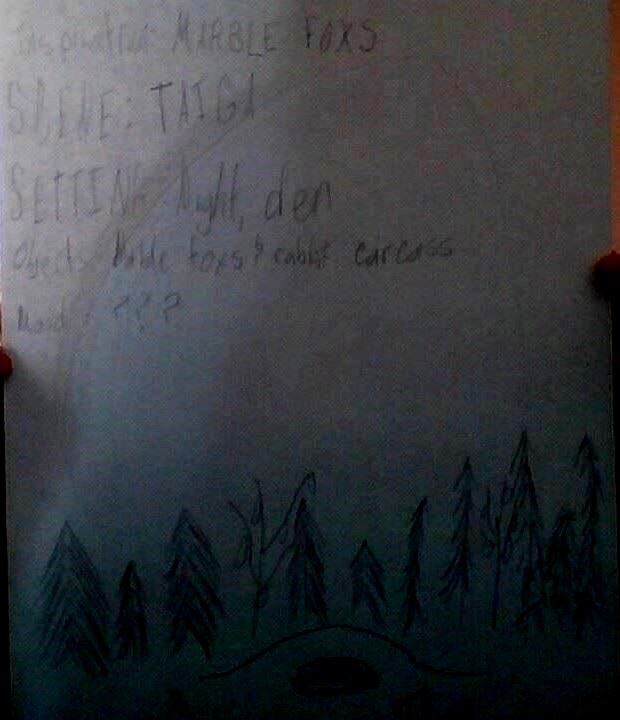 Inspiration: MARBLE FOXS
SCENE: TAIGA
SETTING: Night, den
Objects: Marble Foxs & rabbit carcass
Mood: ???